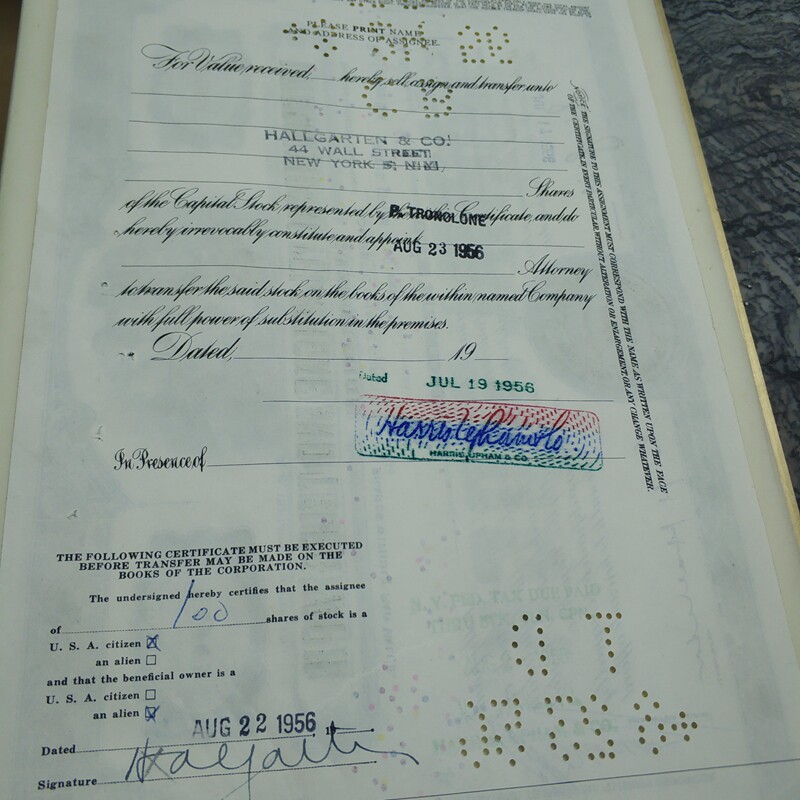 PLEASE PRINT NAME
AND ADDRESS OF ASSIGNEE.
For Value received, hereby sell, assign and transfer unto
HALLGARTEN & CO.
44 WALL STREET
NEW YORK 5, N.Y.
Shares
of the Capital Stock, represented by the within Certificate, and do
P. TRONOLONE
hereby irrevocably constitute and appoint
AUG 23 1956
Attorney
to transfer the said stock on the books of the within named Company
with full power of substitution in the premises.
Dated, 19
Dated JUL 19 1956
Harris Upham & Co
HARRIS, UPHAM & CO.
In Presence of
NOTICE THE SIGNATURE TO THIS ASSIGNMENT MUST CORRESPOND WITH THE NAME AS WRITTEN UPON THE FACE
OF THE CERTIFICATE IN EVERY PARTICULAR WITHOUT ALTERATION OR ENLARGEMENT OR ANY CHANGE WHATEVER.
THE FOLLOWING CERTIFICATE MUST BE EXECUTED
BEFORE TRANSFER MAY BE MADE ON THE
BOOKS OF THE CORPORATION.
The undersigned hereby certifies that the assignee
of 100 shares of stock is a
U. S. A. citizen
an alien
and that the beneficial owner is a
U. S. A. citizen
an alien
Dated AUG 22 1956
Signature Hallgarten